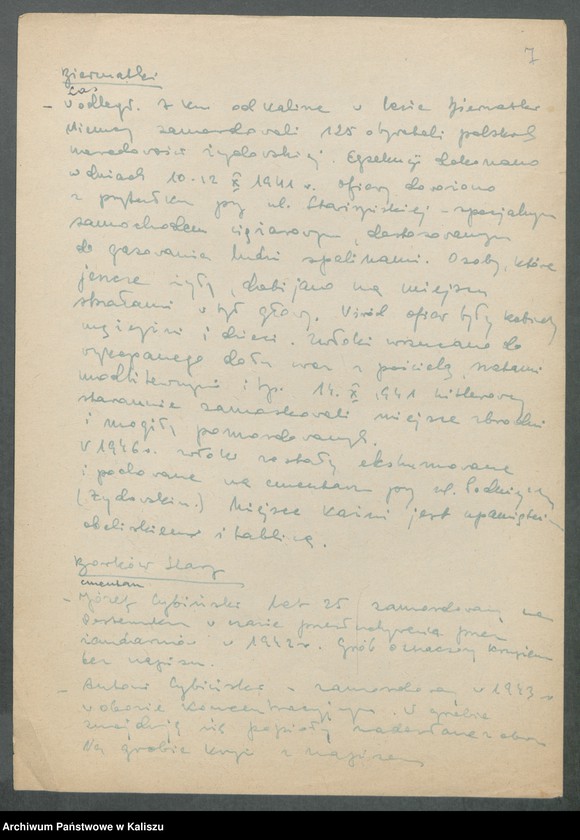 7
Biernatki
las
- W odległ. 7 km od Kalisza w lesie Biernatki
Niemcy zamordowali 125 obywateli polskich
narodowości żydowskiej. Egzekucji dokonano
w dniach 10-12 X 1941 r. Ofiary dowożono
z przytułku przy ul. Stawiszyńskiej - specjalnym
samochodem ciężarowym, dostosowanym
do gazowania ludzi spalinami. Osoby, które
jeszcze żyły, dobijano na miejscu
strzałami w tył głowy. Wśród ofiar były kobiety
mężczyźni i dzieci. Zwłoki wrzucano do
wykopanego dołu wraz z pościelą, szatami
modlitewnymi itp. 14. X 1941 hitlerowcy
starannie zamaskowali miejsce zbrodni
i mogiłę pomordowanych.
W 1946 r. zwłoki zostały ekshumowane
i pochowane na cmentarzu przy ul. Podmiejskiej
(Żydowskim.) Miejsce kaźni jest upamiętnione
obeliskiem i tablicą.
Borków Stary
cmentarz
- Józef Cybiński lat 25 zamordowany na
Posterunku w czasie przesłuchiwania przez
żandarmów w 1942 r. Grób oznaczony krzyżem
bez napisu.
- Antoni Cybiński - zamordowany w 1943 r
w obozie koncentracyjnym. W grobie
znajdują się popioły nadesłane z obozu
Na grobie krzyż z napisem